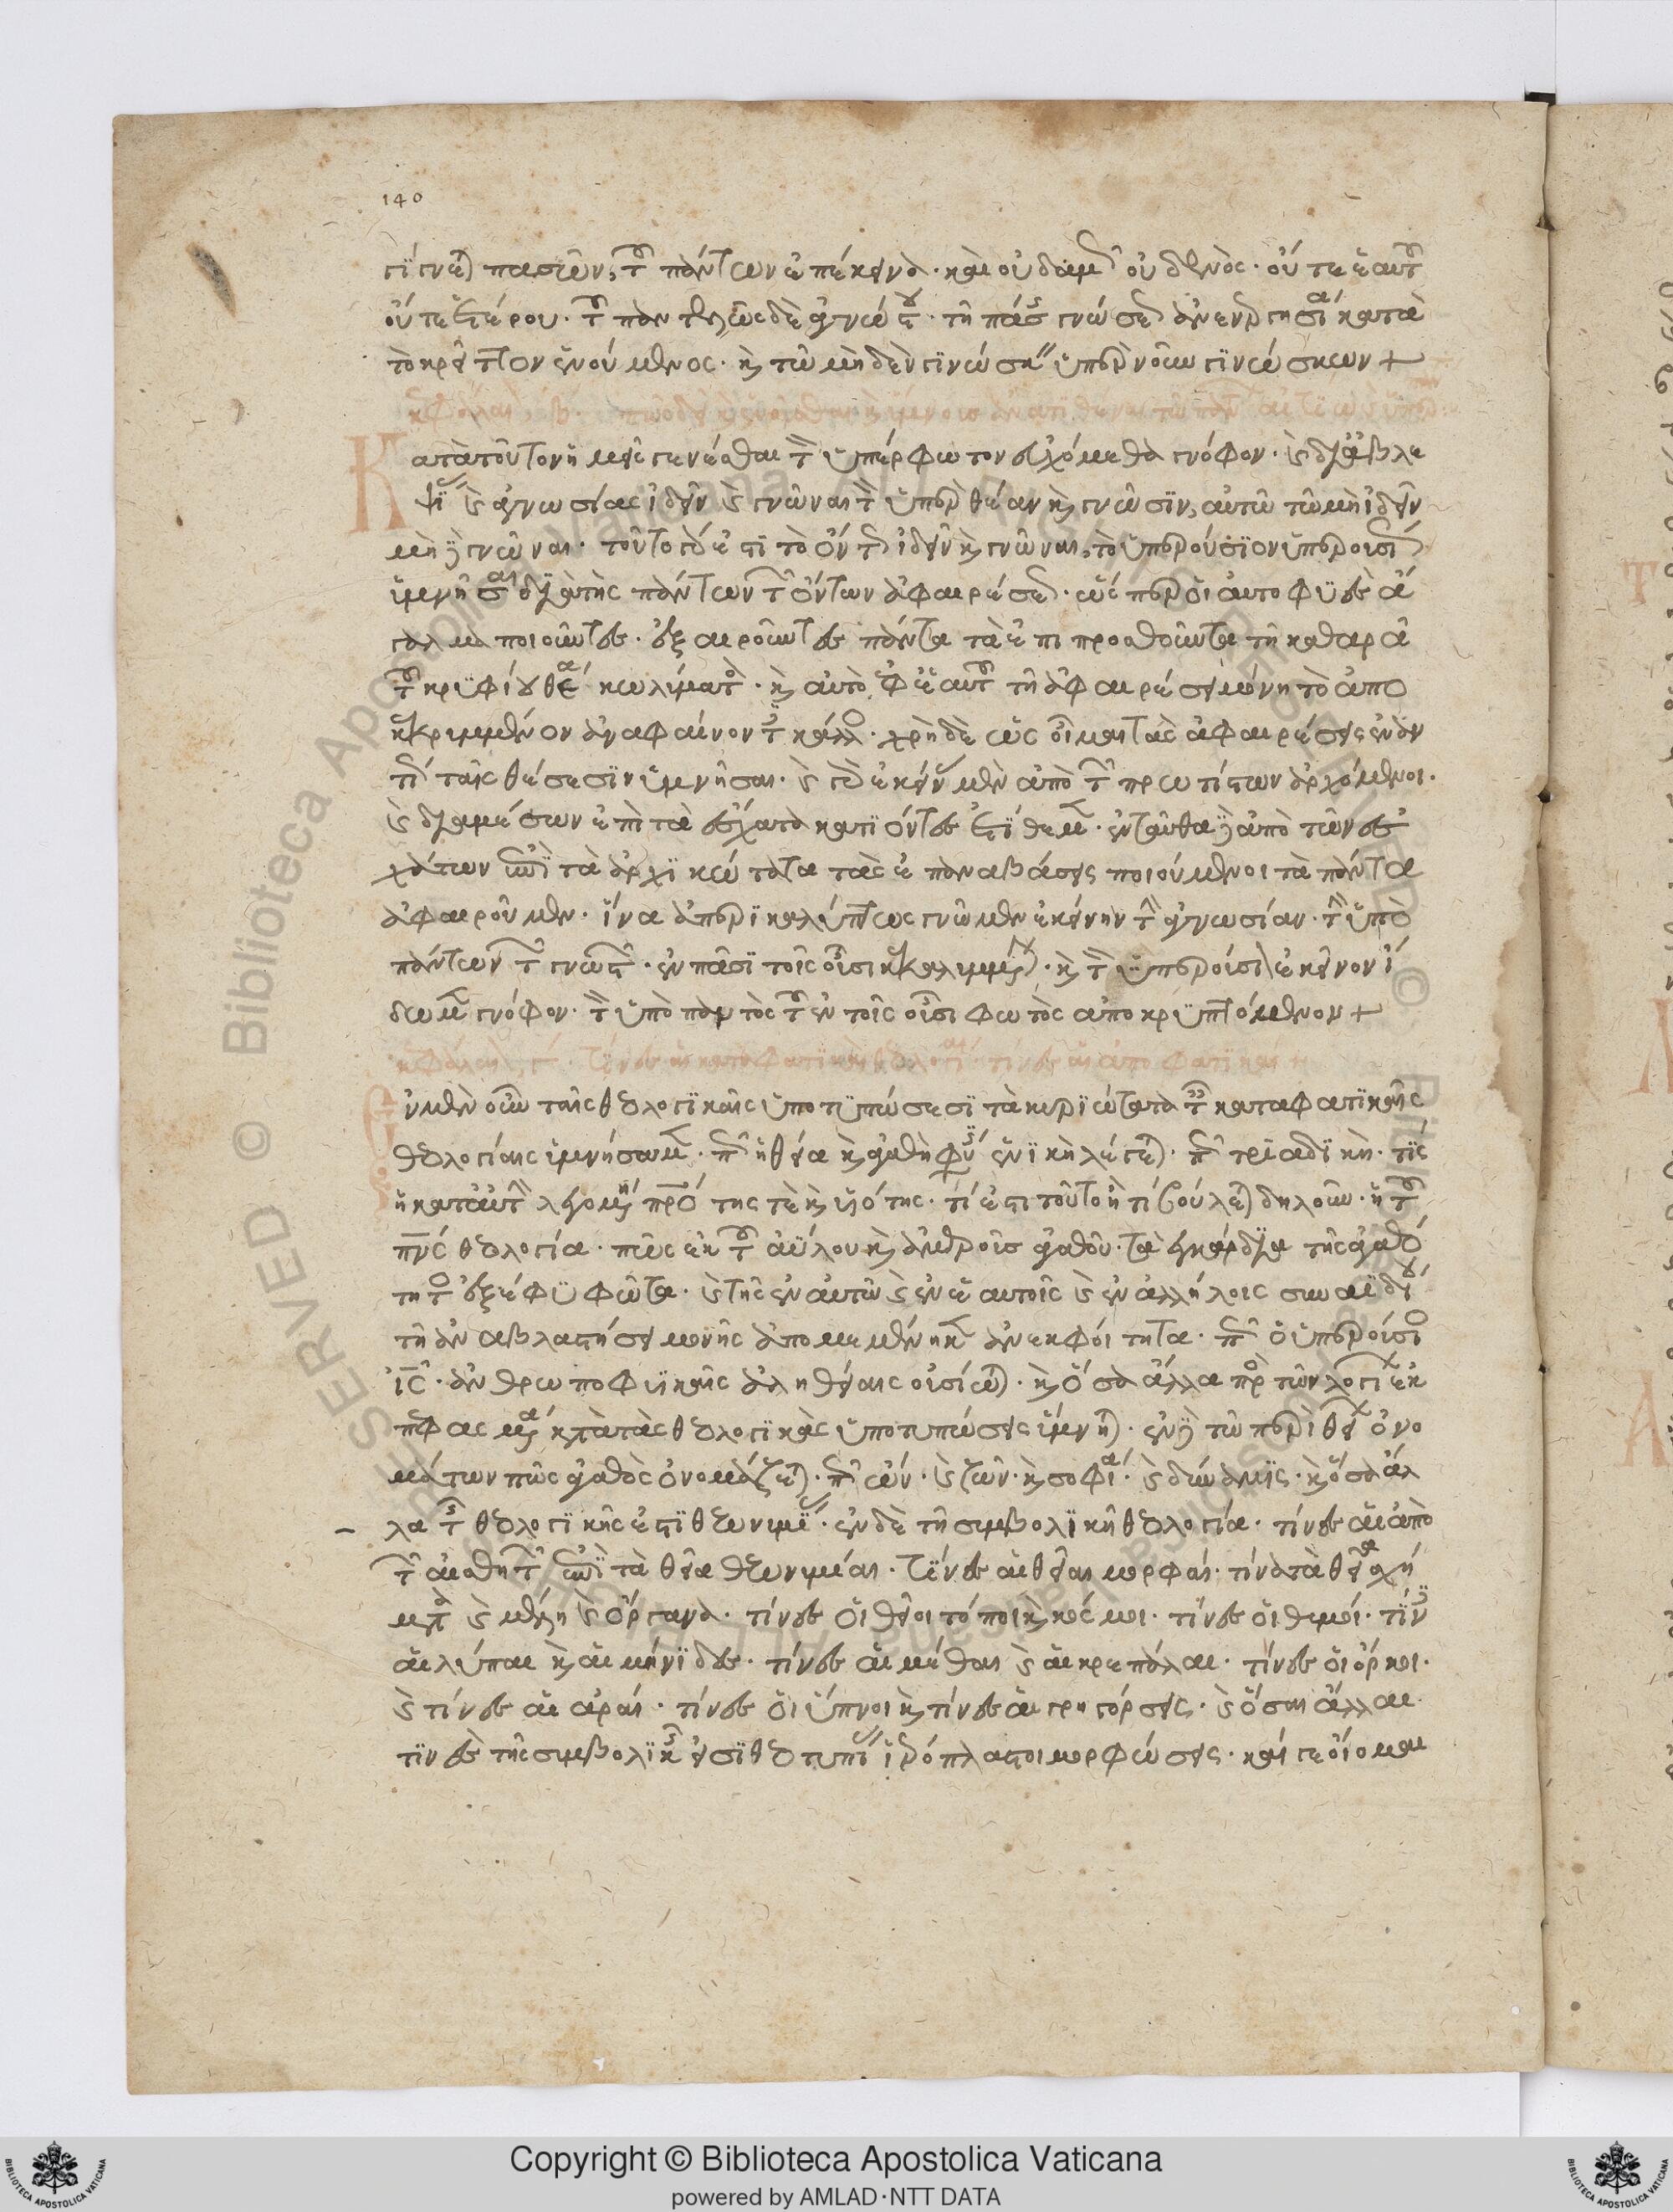 140
γίγνεται πασῶν, τοῦ πάντων ἐπέκεινα· καὶ οὐδαμῶς οὐδενὸς· οὔτε ἑαυτοῦ
οὔτε ἑτέρου· τοῦ παντελῶς δὲ ἀγνώστου· τῇ πάσης γνώσεως ἀνενεργησίᾳ κατὰ
τὸ κρεῖττον ἑνούμενος· καὶ τῷ μηδὲν γινώσκειν ὑπὲρ νοῦν γινώσκων +
κεφάλαιον β· πῶς δεῖ καὶ ἑνοῦσθαι καὶ ὕμνους ἀνατιθέναι τῷ πάντων αἰτίῳ καὶ ὑπὲρ
Κατὰ τοῦτον ἡμεῖς γενέσθαι τὸν ὑπέρφωτον εὐχόμεθα γνόφον· καὶ δι' ἀβλε
ψίας καὶ ἀγνωσίας ἰδεῖν καὶ γνῶναι τὸν ὑπὲρ θέαν καὶ γνῶσιν, αὐτῷ τῷ μὴ ἰδεῖν
μὴ δὲ γνῶναι· τοῦτο γάρ ἐστι τὸ ὄντως ἰδεῖν καὶ γνῶναι, τὸ ὑπερούσιον ὑπερουσίως
ὑμνῆσαι διὰ τῆς πάντων τῶν ὄντων ἀφαιρέσεως· ὥσπερ οἱ αὐτοφυὲς ἄ
γαλμα ποιοῦντες· ἐξαιροῦντες πάντα τὰ ἐπιπροσθοῦντα τῇ καθαρᾷ
τοῦ κρυφίου θέᾳ κωλύματα· καὶ αὐτὸ ἐφ' ἑαυτοῦ τῇ ἀφαιρέσει μόνῃ τὸ ἀπο
κεκρυμμένον ἀναφαίνοντες κάλλος· χρὴ δὲ ὡς οἶμαι τὰς ἀφαιρέσεις ἐναν
τίως ταῖς θέσεσιν ὑμνῆσαι· καὶ γὰρ ἐκείνας μὲν ἀπὸ τῶν πρωτίστων ἀρχόμενοι·
καὶ διὰ μέσων ἐπὶ τὰ ἔσχατα κατιόντες ἐτίθεμεν· ἐνταῦθα δὲ ἀπὸ τῶν ἐσ
χάτων ἐπὶ τὰ ἀρχικώτατα τὰς ἐπαναβάσεις ποιούμενοι τὰ πάντα
ἀφαιροῦμεν· ἵνα ἀπερικαλύπτως γνῶμεν ἐκείνην τὴν ἀγνωσίαν· τὴν ὑπὸ
πάντων τῶν γνωστῶν· ἐν πᾶσι τοῖς οὖσι κεκαλυμμένην· καὶ τὸν ὑπερούσιον ἐκεῖνον ἴ
δωμεν γνόφον· τὸν ὑπὸ παντὸς τοῦ ἐν τοῖς οὖσι φωτὸς ἀποκρυπτόμενον +
κεφάλαιον γ· τίνες αἱ καταφατικαὶ θεολογίαι· τίνες αἱ ἀποφατικαί
Ἐν μὲν οὖν ταῖς θεολογικαῖς ὑποτυπώσεσι τὰ κυριώτατα τῆς καταφατικῆς
θεολογίας ὑμνήσαμεν· πῶς ἡ θεία καὶ ἀγαθὴ φύσις ἑνικὴ λέγεται· πῶς τριαδική· τίς
ἡ κατ' αὐτὴν λεγομένη πατρότης τε καὶ υἱότης· τί ἐστι τοῦτο ἢ τί βούλεται δηλοῦν· ἡ τοῦ
πνς θεολογία· πῶς ἐκ τοῦ ἀΰλου καὶ ἀμεροῦς ἀγαθοῦ· τὰ ἐγκάρδια τῆς ἀγαθό
τητος ἐξέφυ φῶτα· καὶ τῆς ἐν αὐτῷ καὶ ἐν ἑαυτοῖς καὶ ἐν ἀλλήλοις συναϊδίου
τῇ ἀναβλαστήσει μονῆς ἀπομεμένηκεν ἀνεκφοίτητα· πῶς ὁ ὑπερούσιος
ις· ἀνθρωποφυϊκαῖς ἀληθείαις οὐσίωται· καὶ ὅσα ἄλλα πρὸς τῶν λογίων ἐκ
πεφασμένα κατὰ τὰς θεολογικὰς ὑποτυπώσεις ὕμνηται· ἐν δὲ τῷ περὶ θείων ὀνο
μάτων πῶς ἀγαθὸς ὀνομάζεται· πῶς ὤν· καὶ ζωή· καὶ σοφία· καὶ δύναμις· καὶ ὅσα ἄλ
λα τῆς θεολογικῆς ἐστι θεωνυμίας· ἐν δὲ τῇ συμβολικῇ θεολογίᾳ· τίνες αἱ ἀπὸ
τῶν αἰσθητῶν ἐπὶ τὰ θεῖα θεωνυμίαι· τίνες αἱ θεῖαι μορφαί· τίνα τὰ θεῖα σχή
ματα καὶ μέρη καὶ ὄργανα· τίνες οἱ θεῖοι τόποι καὶ κόσμοι· τίνες οἱ θυμοί· τίνες
αἱ λύπαι καὶ αἱ μήνιδες· τίνες αἱ μέθαι καὶ αἱ κρεπάλαι· τίνες οἱ ὅρκοι·
καὶ τίνες αἱ ἀραί· τίνες οἱ ὕπνοι καὶ τίνες αἱ ἐγρηγόρσεις· καὶ ὅσαι ἄλλαι
τινὲς τῆς συμβολικῆς εἰσι θεοτυπίας ἱερόπλαστοι μορφώσεις· καί γε οἴομαι
Copyright © Biblioteca Apostolica Vaticana
powered by AMLAD·NTT DATA